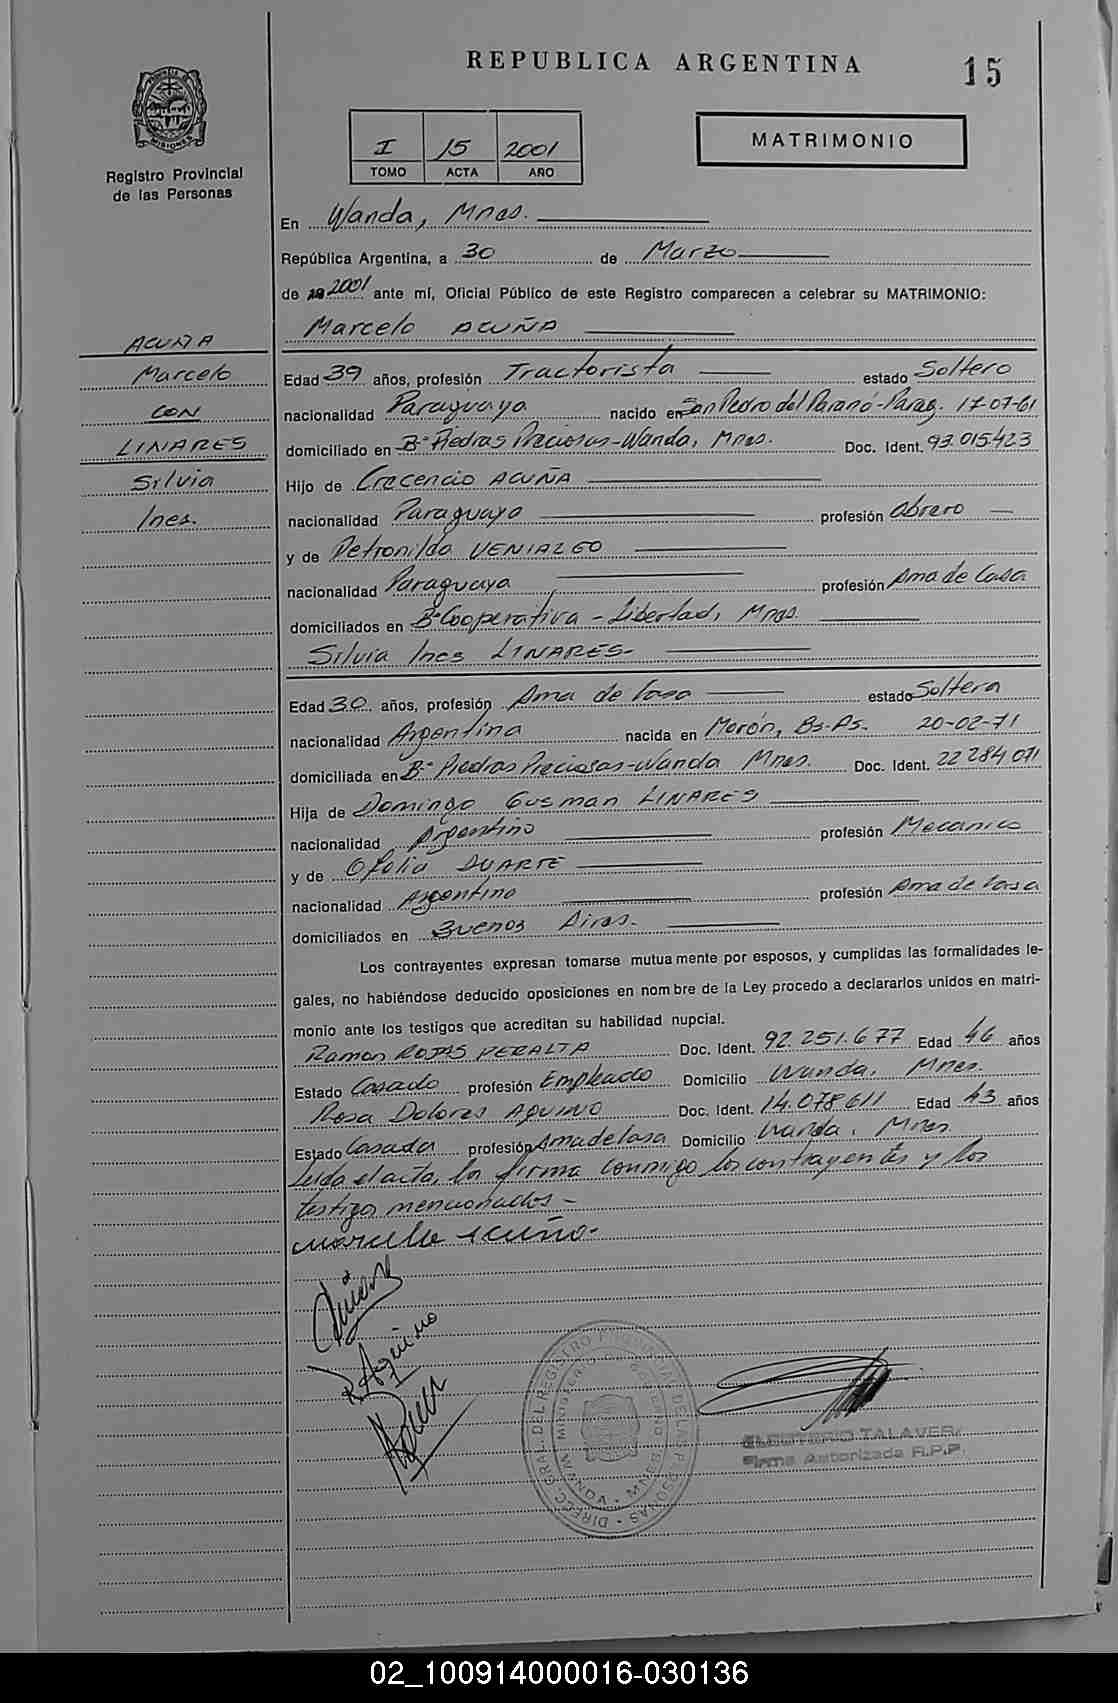 REPUBLICA ARGENTINA
15
Registro Provincial
de las Personas
I 15 2001
TOMO ACTA AÑO
MATRIMONIO
En Wanda, Mnes.
República Argentina, a 30 de Marzo
de 2001 ante mí, Oficial Público de este Registro comparecen a celebrar su MATRIMONIO:
Marcelo ACUÑA
ACUÑA
Marcelo
CON
LINARES
Silvia
Ines.
Edad 39 años, profesión Tractorista estado Soltero
nacionalidad Paraguaya nacido en San Pedro del Paraná-Parag. 17-07-61
domiciliado en B° Piedras Preciosas-Wanda, Mnes. Doc. Ident. 93.015.423
Hijo de Crecencio ACUÑA
nacionalidad Paraguaya profesión Obrero
y de Petronilda
nacionalidad Paraguaya profesión Ama de Casa
domiciliados en B° Cooperativa - Libertad, Mnes.
Silvia Ines LINARES
Edad 30 años, profesión Ama de Casa estado Soltera
nacionalidad Argentina nacida en Morón, Bs-As. 20-02-71
domiciliada en B° Piedras Preciosas-Wanda Mnes. Doc. Ident. 22 284 071
Hija de Domingo Gusman LINARES
nacionalidad Argentino profesión Mecanico
y de Ofelia DUARTE
nacionalidad Argentina profesión Ama de Casa
domiciliados en Buenos Aires.
Los contrayentes expresan tomarse mutuamente por esposos, y cumplidas las formalidades le-
gales, no habiéndose deducido oposiciones en nombre de la Ley procedo a declararlos unidos en matri-
monio ante los testigos que acreditan su habilidad nupcial.
Ramon ROJAS PERALTA Doc. Ident. 92.251.677 Edad 46 años
Estado Casado profesión Empleado Domicilio Wanda, Mnes.
Rosa Dolores AQUINO Doc. Ident. 14.078.611 Edad 43 años
Estado Casada profesión Ama de Casa Domicilio Wanda, Mnes.
Leída el acta, la firma conmigo los contrayentes y los
testigos mencionados-
Marcelo Acuña.
R Aquino
DIREC. GRAL. DEL REGISTRO PROVINCIAL DE LAS PERSONAS
MINISTERIO DE GOBIERNO
WANDA - MNES
ELEUTERIO TALAVERA
Firma Autorizada R.P.P.
02_100914000016-030136